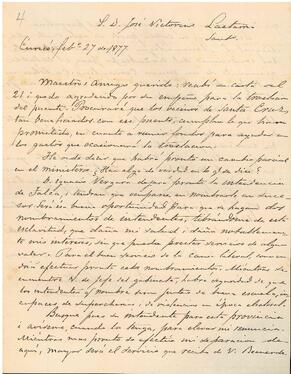 S. D. José Victorino Lastarria
Curicó, feb.o 27 de 1877.
Maestro i amigo querido: recibí su carta del
21 i quedo agradecido por su empeño para la traslacion
del puente. Procurará que los vecinos de Santa Cruz,
tan beneficiados con ese puente, cumplan lo que tienen
prometido, en cuanto a reunir fondos para ayudar en
los gastos que ocasionará la traslacion.
He oido decir que habrá pronto un cambio parcial
en el ministerio. ¿Hai algo de verdad en lo que se dice?
D. Ignacio Vergara dejará pronto la intendencia
de Talca, i tendrán que empeñarse en nombrarle un
sucesor. Será esa buena oportunidad para que se hagan dos
nombramientos de intendentes, librándome de esta
esclavitud, que daña mi salud i daña notablemente
mis intereses, sin que pueda prestar servicios de algun
valor. Para el buen servicio de la causa liberal, conven-
drá efectuar pronto estos nombramientos. Mientras se
encuentre V. de jefe del gabinete, habrá seguridad de que
los intendentes que nombre sean justos de buena escuela, in-
capaces de supercherías i de violencias en época electoral.
Busque pues un intendente para esta provincia
i avíseme, cuando lo tenga, para elevar mi renuncia.
Mientras mas pronto se efectúe mi separacion de
aquí, mayor será el servicio que reciba de V.